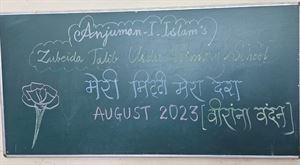 Anjuman-I-Islam's
Zubeida Talib Urdu Primary School
मेरी मिट्टी मेरा देश
AUGUST 2023 [वीरांना वंदन]